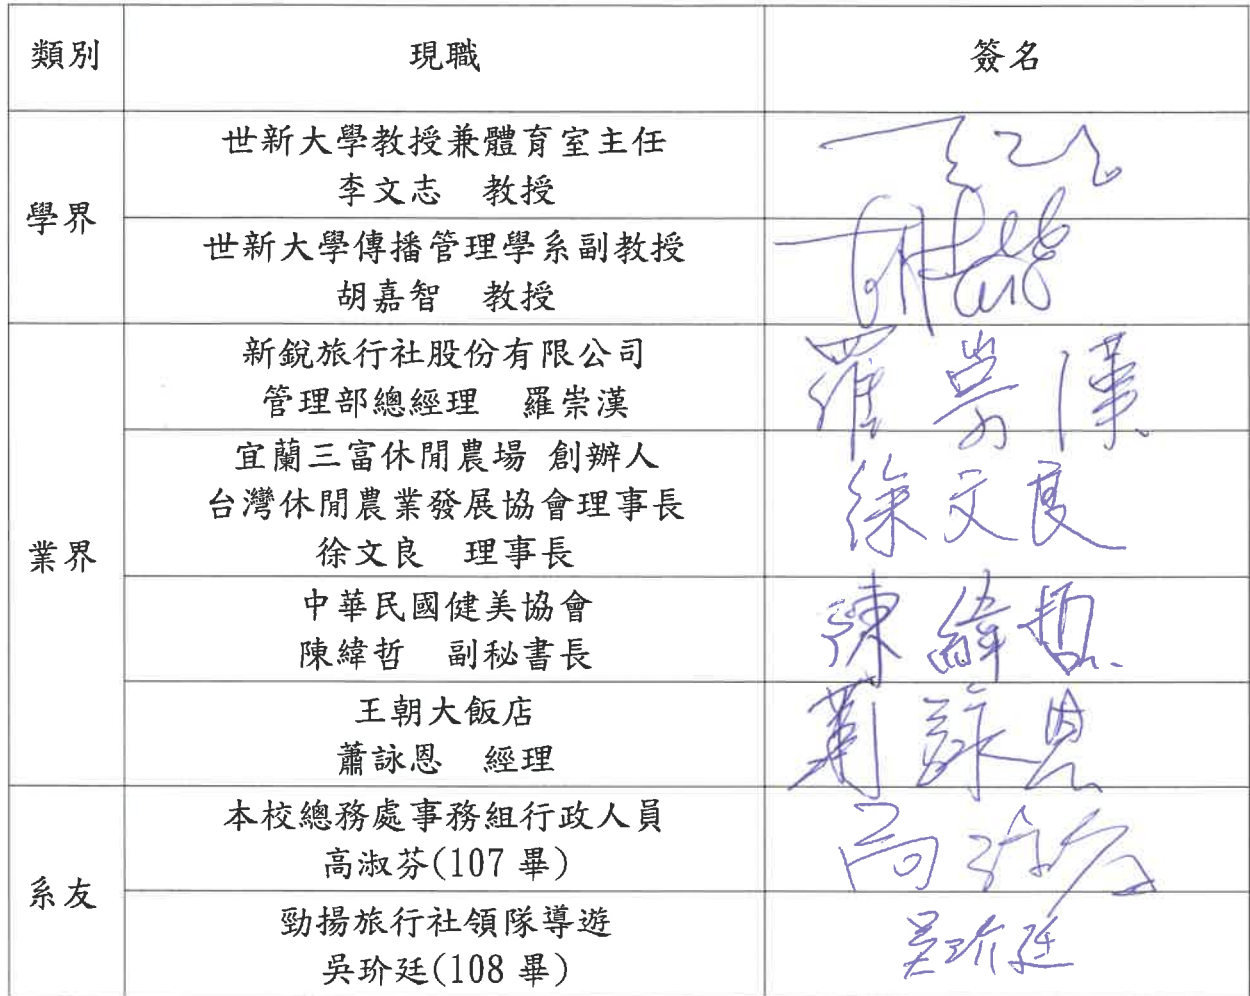 類別 現職 簽名
學界
世新大學教授兼體育室主任
李文志 教授
世新大學傳播管理學系副教授
胡嘉智 教授
業界
新銳旅行社股份有限公司
管理部總經理 羅崇漢
羅崇漢
宜蘭三富休閒農場 創辦人
台灣休閒農業發展協會理事長
徐文良 理事長
徐文良
中華民國健美協會
陳緯哲 副秘書長
陳緯哲
王朝大飯店
蕭詠恩 經理
蕭詠恩
系友
本校總務處事務組行政人員
高淑芬(107 畢)
高淑芬
勁揚旅行社領隊導遊
吳玠廷(108 畢)
吳玠廷